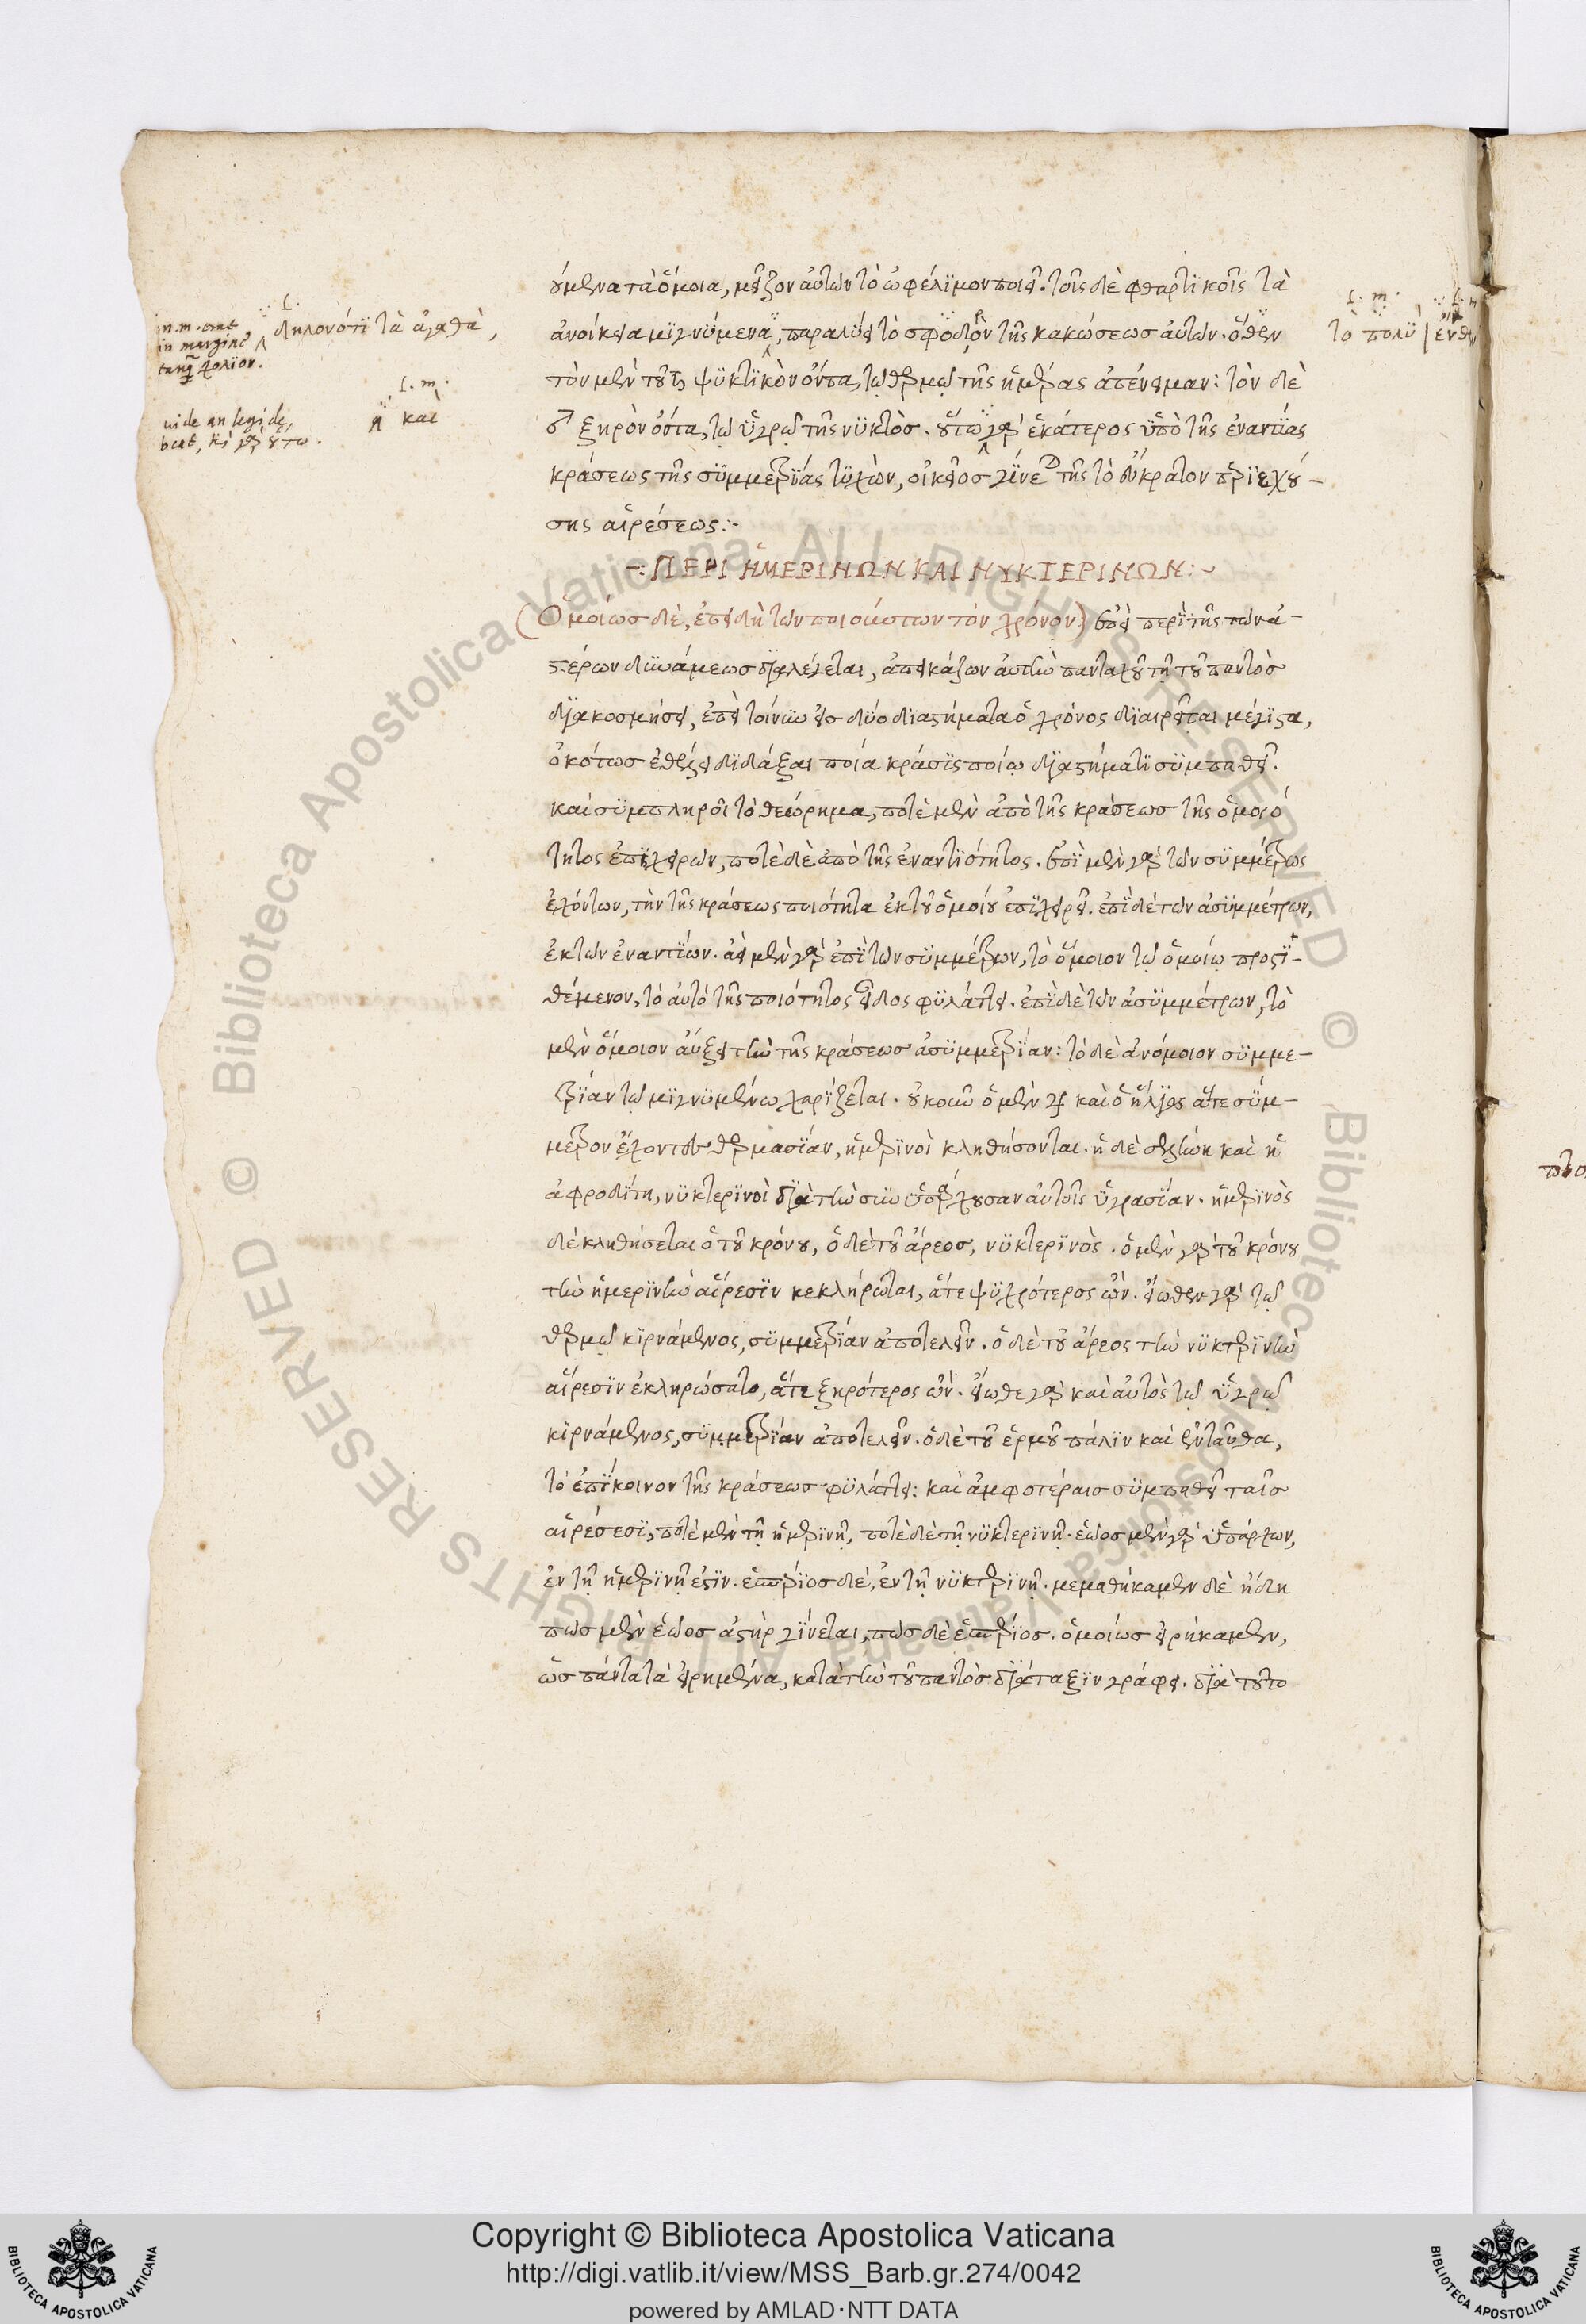 ούμενα τὰ ὅμοια, μεῖζον αὐτῶν τὸ ὠφέλϊμον ποιεῖ. τοῖς δὲ φθαρτϊκοῖς τὰ
ἀνοίκεια μϊγνύμενα, παραλύει τὸ σφοδρὸν τῆς κακώσεως αὐτῶν. ὅθεν
τὸν μὲν τοῦ ♄ ψϋκτϊκὸν ὄντα, τῷ θερμῷ τῆς ἡμέρας ἀπένειμαν: τὸν δὲ
♂ ξηρὸν ὄντα, τῷ ὑγρῷ τῆς νϋκτὸς. οὕτω γὰρ ἑκάτερος ὑπὸ τῆς ἐναντίας
κράσεως τῆς σϋμμετρίας τϋχὼν, οἰκεῖος γίνεται τῆς τὸ εὔκρατον περϊεχού-
σης αἱρέσεως:-
-:ΠΕΡΙ ἩΜΕΡΙΝΩΝ ΚΑΙ ΝΥΚΤΕΡΙΝΩΝ:-
(Ὁμοίως δὲ, ἐπειδὴ τῶν ποιούντων τὸν χρόνον) ἐπεὶ περὶ τῆς τῶν ἀ-
στέρων δϋνάμεως διαλέγεται, ἀπεικάζων αὐτὴν πανταχοῦ τῇ τοῦ παντὸς
διακοσμήσει, ἐπεὶ τοίνυν εἰς δύο δϊαστήματα ὁ χρόνος δϊαιρεῖται μέγϊστα,
εἰκότως ἐθέλει δϊδάξαι ποία κράσϊς ποίῳ διαστήματϊ σϋμπαθεῖ.
καὶ σϋμπληροῖ τὸ θεώρημα, ποτὲ μὲν ἀπὸ τῆς κράσεως τῆς ὁμοιό
τητος ἐπϊχειρῶν, ποτὲ δὲ ἀπὸ τῆς ἐναντϊότητος. ἐπϊ μὲν γὰρ τῶν σϋμμέτρως
ἐχόντων, τὴν τῆς κράσεως ποιότητα ἐκ τοῦ ὁμοίου ἐπϊχειρεῖ. ἐπϊ δὲ τῶν ἀσϋμμέτρων,
ἐκ τῶν ἐναντϊων. ἀεὶ μὲν γὰρ ἐπϊ τῶν σϋμμέτρων, τὸ ὅμοιον τῷ ὁμοίῳ προστϊ-
θέμενον, τὸ αὐτὸ τῆς ποιότητος εἶδος φϋλάττει. ἐπϊ δὲ τῶν ἀσϋμμέτρων, τὸ
μὲν ὅμοιον αὔξει τὴν τῆς κράσεως ἀσϋμμετρϊαν: τὸ δὲ ἀνόμοιον σϋμμε-
τρϊαν τῷ μϊγνϋμένῳ χαρϊζεται. οὐκοῦν ὁ μὲν ♃ καὶ ὁ ἥλϊος ἅτε σϋμ-
μετρον ἔχοντες θερμασϊαν, ἡμερϊνοὶ κληθήσονται. ἡ δὲ σελήνη καὶ ἡ
ἀφροδίτη, νϋκτερϊνοὶ διὰ τὴν σϋνϋπάρχουσαν αὐτοῖς ὑγρασϊαν. ἡμερϊνὸς
δὲ κληθήσεται ὁ τοῦ κρόνου, ὁ δὲ τοῦ ἄρεος, νϋκτερϊνὸς. ὁ μὲν γὰρ τοῦ κρόνου
τὴν ἡμερϊνὴν αἵρεσϊν κεκλήρωται, ἅτε ψϋχρότερος ὢν. εἴωθεν γὰρ τῷ
θερμῷ κϊρνάμενος, σϋμμετρϊαν ἀποτελεῖν. ὁ δὲ τοῦ ἄρεος τὴν νϋκτερϊνὴν
αἵρεσϊν ἐκληρώσατο, ἅτε ξηρότερος ὢν. εἴωθε γὰρ καὶ αὐτὸς τῷ ὑγρῷ
κϊρνάμενος, σϋμμετρϊαν ἀποτελεῖν. ὁ δὲ τοῦ ἑρμοῦ πάλϊν καὶ ἐνταῦθα,
τὸ ἐπϊκοινον τῆς κράσεως φϋλάττει: καὶ ἀμφοτέραις σϋμπαθεῖ ταῖς
αἱρέσεσϊ, ποτὲ μὲν τῇ ἡμερϊνῇ, ποτὲ δὲ τῇ νϋκτερϊνῇ. ἑῷος μὲν γὰρ ὑπάρχων,
ἐν τῇ ἡμερϊνῇ ἐστϊν. ἑσπέρϊος δὲ, ἐν τῇ νϋκτερϊνῇ. μεμαθήκαμεν δὲ ἤδη
πῶς μὲν ἑῷος ἀστὴρ γϊνεται, πῶς δὲ ἑσπέρϊος. ὁμοίως εἰρήκαμεν,
ὡς πάντα τὰ εἰρημένα, κατὰ τὴν τοῦ παντὸς διάταξϊν γράφει. διὰ τοῦτο
in m. erat
in margine
tanq̃ σχόλϊον.
δηλονότϊ τὰ ἀγαθὰ,
f. m.
vide an legi de-
beat, καὶ γὰρ οὕτω.
ἢ και
f. m.
τὸ πολϋ
Copyright © Biblioteca Apostolica Vaticana
http://digi.vatlib.it/view/MSS_Barb.gr.274/0042
powered by AMLAD·NTT DATA